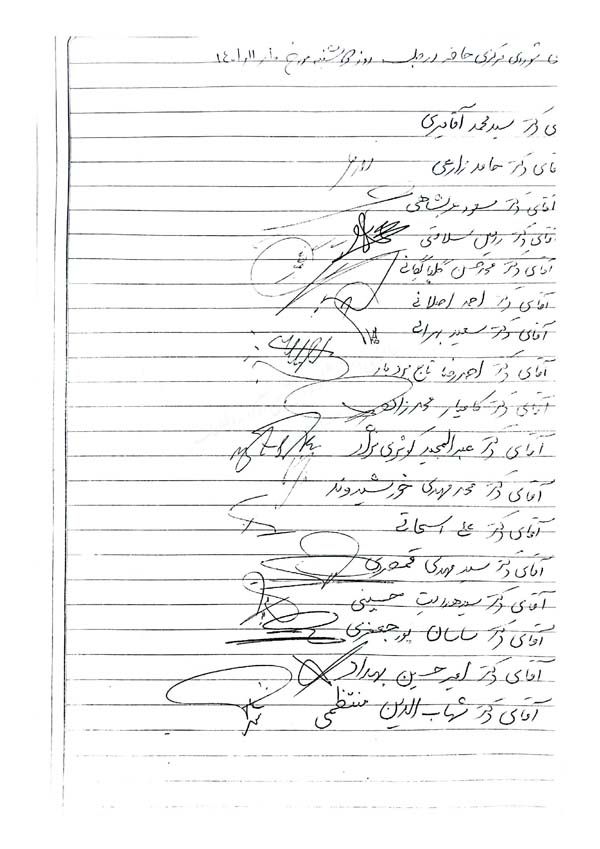 شورای مرکزی حاضر در جلسه روز مورخ
دکتر سید محمد آقامیری
آقای دکتر حامد زارعی
آقای دکتر مسعود
آقای دکتر سلامتی
آقای دکتر محمد حسن گلپایگانی
آقای دکتر احمد اصلانی
آقای دکتر سعید بهرامی
آقای دکتر احمدرضا تاج
آقای دکتر کامیار
آقای دکتر عبدالمجید کوثری نژاد
آقای دکتر محمد مهدی خورشیدوند
آقای دکتر علی
آقای دکتر سید مهدی قمصری
آقای دکتر سید هدایت حسینی
آقای دکتر ساسان پورجعفری
آقای دکتر امیرحسین بهداد
آقای دکتر شهاب الدین منتظمی